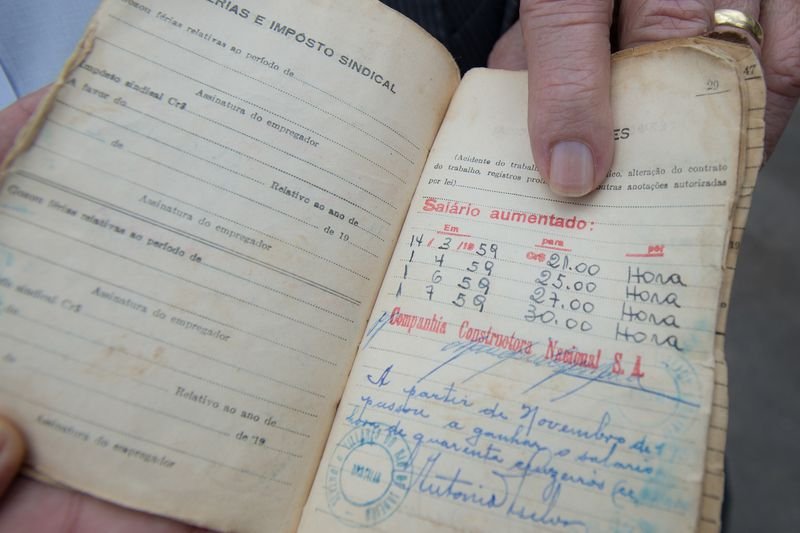 FÉRIAS E IMPÔSTO SINDICAL
Gozou férias relativas ao período de
Assinatura do empregador
Impôsto sindical Cr$
A favor do
de
Relativo ao ano de
de 19
Assinatura do empregador
Gozou férias relativas ao período de
Assinatura do empregador
sindical Cr$
de
Relativo ao ano de
de 19
Assinatura do empregador
47
29
ES
(Acidente do trabalho
do trabalho, registros
alteração do contrato
outras anotações autorizadas
por lei)
Salário aumentado:
Em para por
14 / 3 / 19 59 Cr$ 21.00 Hora
1 4 59 25.00 Hora
1 6 59 27.00 Hora
1 7 59 30.00 Hora
Companhia Constructora Nacional S. A.
A partir de Novembro de
passou a ganhar o salario
hora de quarenta cruzeiros